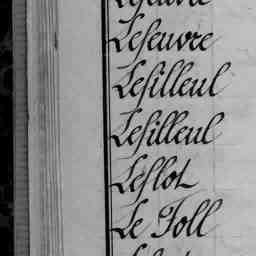 Lefeuvre
Lefeuvre
Lefilleul
Lefilleul
Leflot
Le Foll